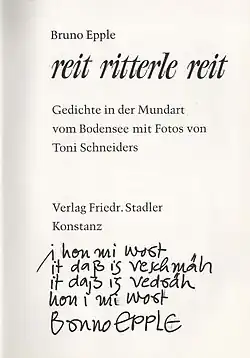 Bruno Epple
reit ritterle reit
Gedichte in der Mundart
vom Bodensee mit Fotos von
Toni Schneiders
Verlag Friedr. Stadler
Konstanz
i hon mi wost
it daß is veschmäh
it daß is vedräh
hon i mi wost
Bruno EPPLE